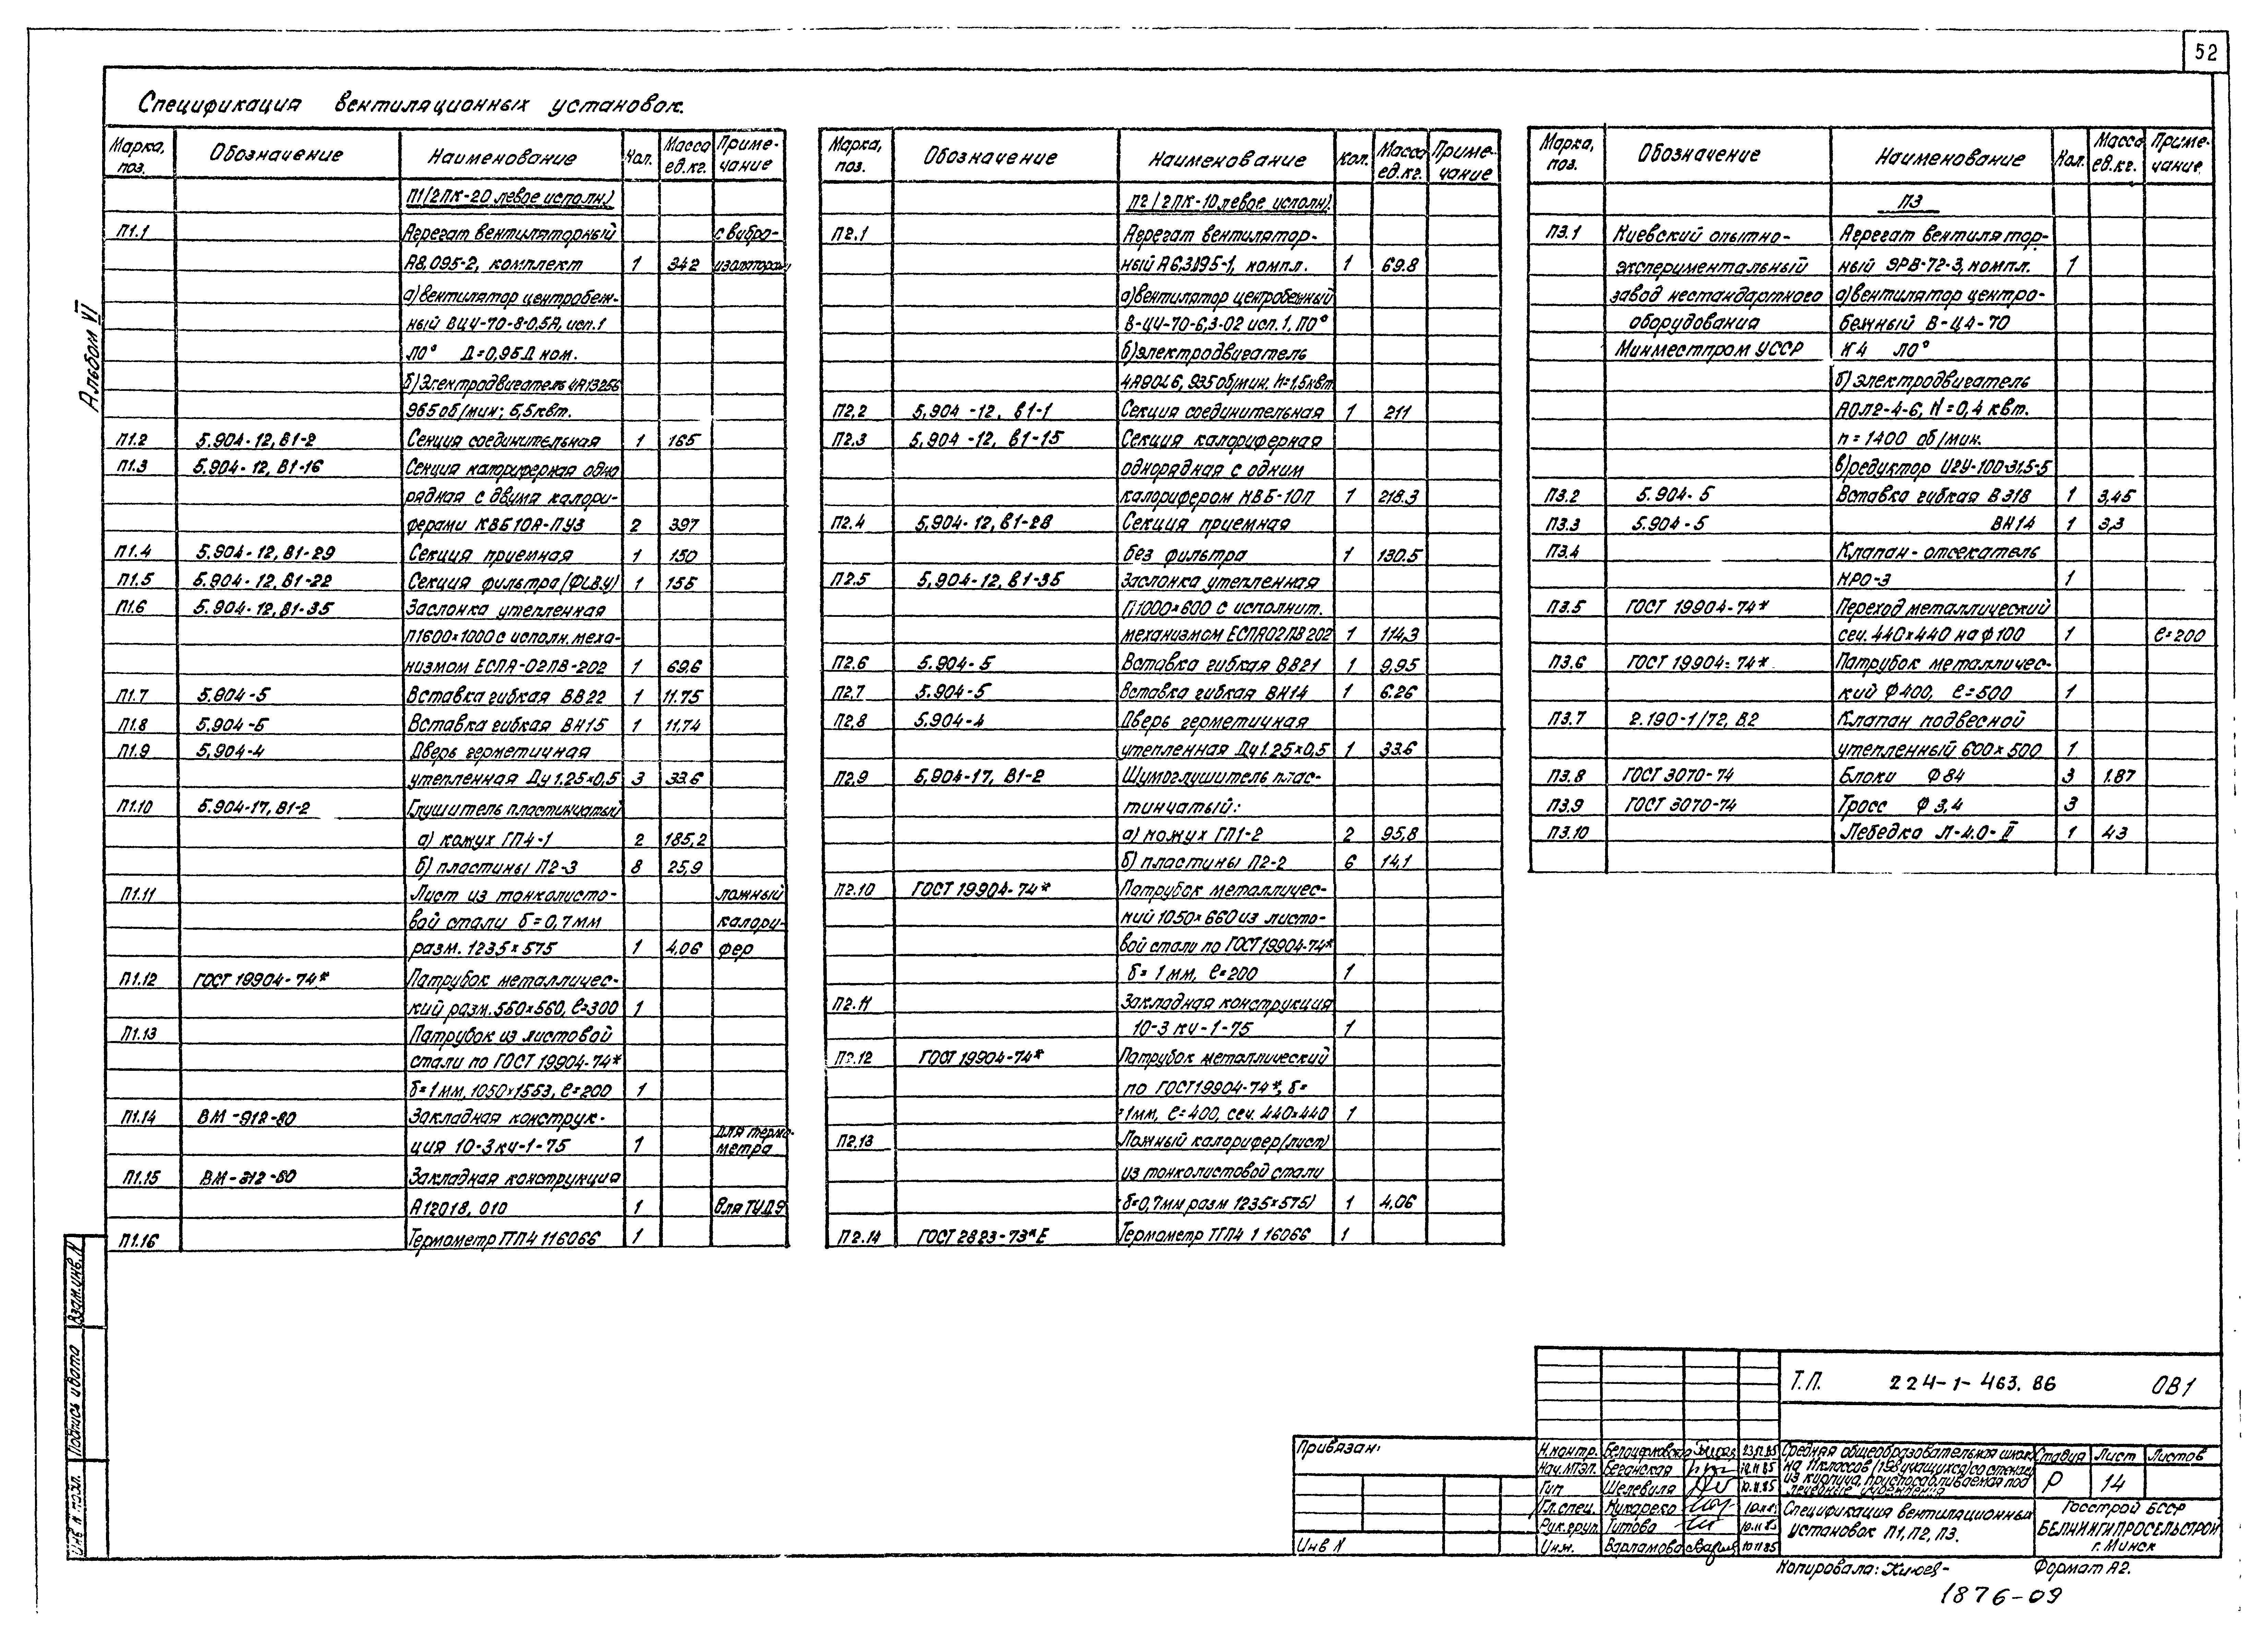 52
Альбом VI
Спецификация вентиляционных установок.
Марка, поз. Обозначение Наименование Кол. Масса ед.кг. Приме-чание
П1 (2ПК-20 левое исполн)
П1.1 Агрегат вентиляторный с вибро-
А8.095-2, комплект 1 342 изоляторами
а) вентилятор центробеж-
ный ВЦ4-70-8-0,5А, исп.1
Л0° Д=0,95Д ном.
б) Электродвигатель 4А132S6
965 об/мин; 5,5квт.
П1.2 5.904-12, В1-2 Секция соединительная 1 165
П1.3 5.904-12, В1-16 Секция калориферная одно
рядная с двумя калори-
ферами КВБ10А-ПУЗ 2 397
П1.4 5.904-12, В1-29 Секция приемная 1 150
П1.5 5.904-12, В1-22 Секция фильтра 1 155
П1.6 5.904-12, В1-35 Заслонка утепленная
П1600×1000 с исполн. меха-
низмом ЕСПА-02ПВ-202 1 69.6
П1.7 5.904-5 Вставка гибкая ВВ22 1 11.75
П1.8 5.904-5 Вставка гибкая ВН15 1 11,74
П1.9 5.904-4 Дверь герметичная
утепленная Ду 1.25×0,5 3 33.6
П1.10 5.904-17, В1-2 Глушитель пластинчатый
а) кожух ГП4-1 2 185,2
б) пластины П2-3 8 25,9
П1.11 Лист из тонколисто- ложный
вой стали δ=0,7мм калори-
разм. 1235×575 1 4,06 фер
П1.12 ГОСТ 19904-74* Патрубок металличес-
кий разм. 560×560, ℓ=300 1
П1.13 Патрубок из листовой
стали по ГОСТ 19904-74*
δ=1мм, 1050×1553, ℓ=200 1
П1.14 ВМ-912-80 Закладная конструк-
ция 10-3кч-1-75 1 для термо-метра
П1.15 Закладная конструкция
А12018.010 1 для ТУДЭ
П1.16 Термометр ТТП4 1 160 66 1
Марка, поз. Обозначение Наименование Кол. Масса ед.кг. Приме-чание
П2 (2ПК-10 левое исполн).
П2.1 Агрегат вентилятор-
ный А6.3.195-1, компл. 1 69.8
а) вентилятор центробежный
В-Ц4-70-6,3-02 исп.1, П0°
б) электродвигатель
4А90L6, 935 об/мин. N=1,5квт
П2.2 5.904-12, В1-1 Секция соединительная 1 211
П2.3 5.904-12, В1-15 Секция калориферная
однорядная с одним
калорифером КВБ-10П 1 218.3
П2.4 5.904-12, В1-28 Секция приемная
без фильтра 1 130.5
П2.5 5.904-12, В1-35 Заслонка утепленная
П1000×600 с исполнит.
механизмом ЕСПА02ПВ 202 1 114,3
П2.6 5.904-5 Вставка гибкая ВВ21 1 9.95
П2.7 5.904-5 Вставка гибкая ВН14 1 6.26
П2.8 5.904-4 Дверь герметичная
утепленная Ду 1.25×0,5 1 33.6
П2.9 5.904-17, В1-2 Шумоглушитель плас-
тинчатый:
а) кожух ГП1-2 2 95.8
б) пластины П2-2 6 14,1
П2.10 ГОСТ 19904-74* Патрубок металличес-
кий 1050×660 из листо-
вой стали по ГОСТ 19904-74*
δ=1мм, ℓ=200 1
П2.11 Закладная конструкция
10-3 кч-1-75 1
П2.12 ГОСТ 19904-74* Патрубок металлический
по ГОСТ 19904-74*, δ=
=1мм, ℓ=400, сеч. 440×440 1
П2.13 Ложный калорифер (лист)
из тонколистовой стали
δ=0,7мм разм 1235×575) 1 4,06
П2.14 ГОСТ 2823-73*Е Термометр ТТП4 1 160 66 1
Марка, поз. Обозначение Наименование Кол. Масса ед.кг. Приме-чание
П3
П3.1 Киевский опытно- Агрегат вентилятор-
экспериментальный ный ЭРВ-72-3, компл. 1
завод нестандартного а) вентилятор центро-
оборудования бежный В-Ц4-70
Минместпром УССР N4 Л0°
б) электродвигатель
АОЛ2-4-6, N=0,4 квт.
n=1400 об/мин.
в) редуктор Ц2У-100-31,5-5
П3.2 5.904-5 Вставка гибкая ВЭ18 1 3,45
П3.3 5.904-5 ВН14 1 3,3
П3.4 Клапан-отсекатель
КРО-3 1
П3.5 ГОСТ 19904-74* Переход металлический
сеч. 440×440 на ф100 1 ℓ=200
П3.6 ГОСТ 19904-74* Патрубок металличес-
кий ф400, ℓ=500 1
П3.7 2.190-1/72, В.2 Клапан подвесной
утепленный 600×500 1
П3.8 ГОСТ 3070-74 Блоки ф84 3 1.87
П3.9 ГОСТ 3070-74 Тросс ф3,4 3
П3.10 Лебедка Л-4.0-II 1 43
Взам.инв.N
Подпись и дата
Инв N подл.
Привязан:
Инв N
Т.П. 224-1-463.86 ОВ1
Н.контр. Белоцерковская
Нач.МТЭП. Беганская 10.11.85
Гип Шелевиля 10.11.85
Гл.спец. Кукареко
Рук.груп. Титова 10.11.85
Инж. Варламова 10.11.85
Средняя общеобразовательная школа
на 11 классов (198 учащихся) со стенами
из кирпича, приспосабливаемая под
лечебные учреждения
Стадия Лист Листов
Р 14
Спецификация вентиляционных
установок П1, П2, П3.
Госстрой БССР
БЕЛНИИГИПРОСЕЛЬСТРОЙ
г. Минск
Копировала:
Формат А2.
1876-09